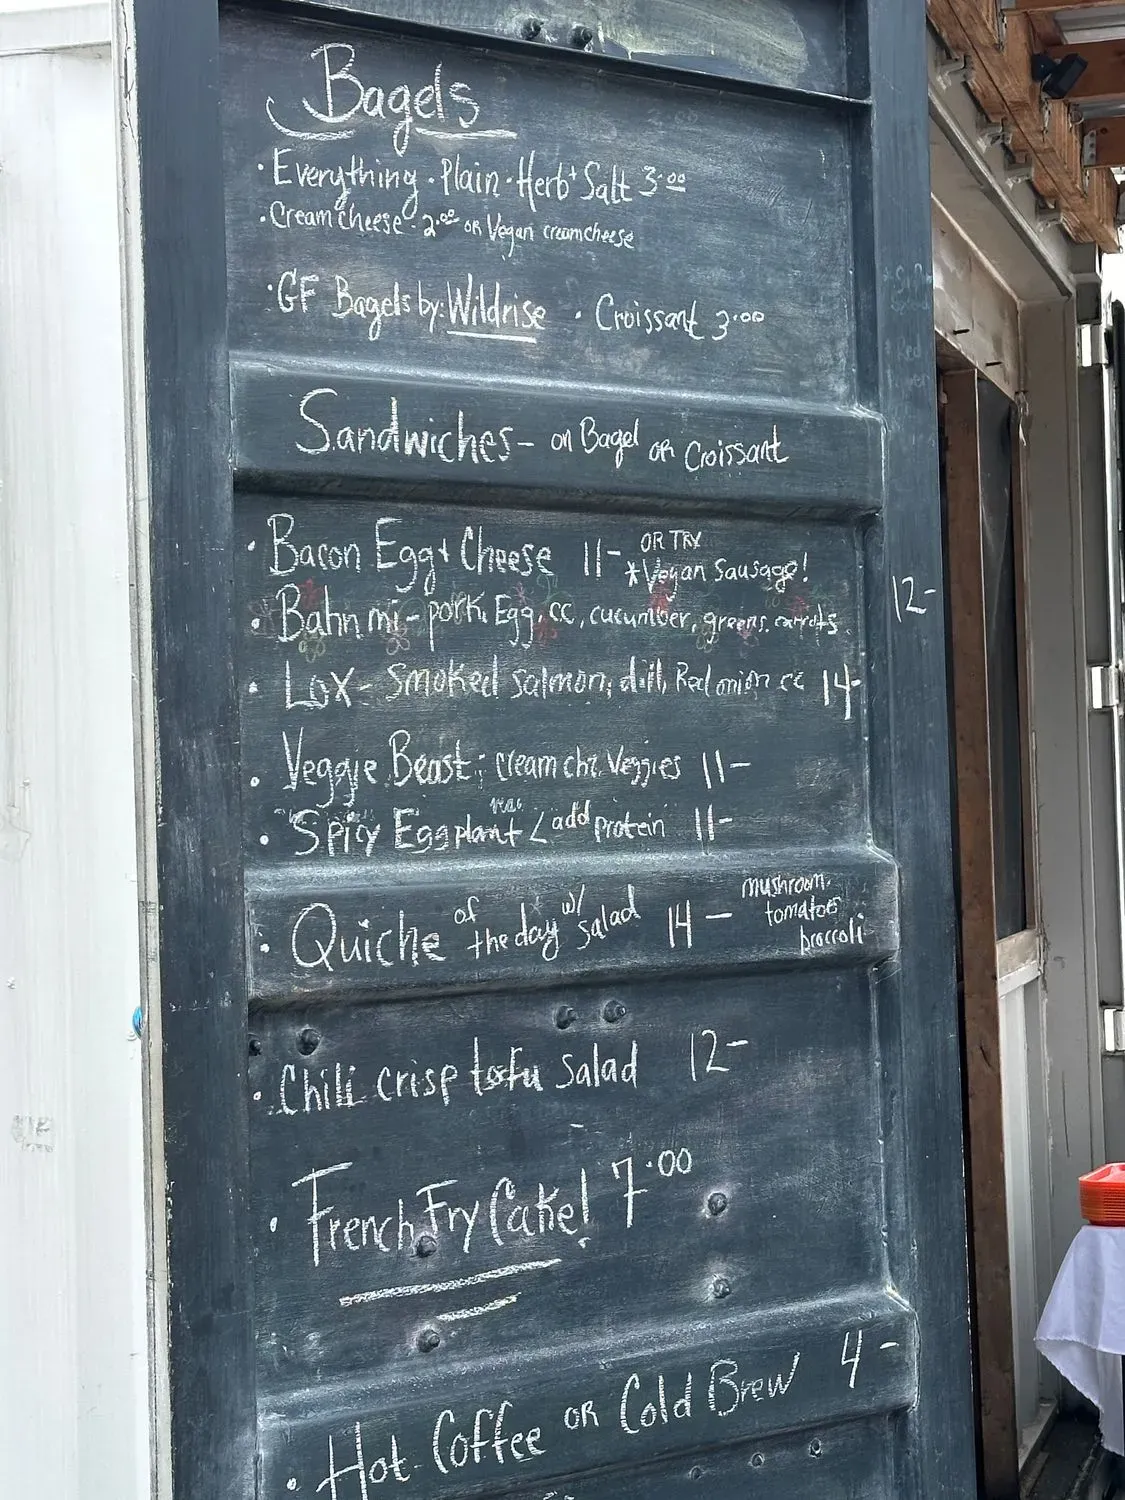 Bagels
· Everything · Plain · Herb + Salt 3.00
· Cream cheese - 2.00 or Vegan creamcheese
· GF Bagels by: Wildrise · Croissant 3.00
Sandwiches - on Bagel or Croissant
· Bacon Egg + Cheese 11- OR TRY *Vegan Sausage!
· Bahn mi - pork, Egg, cc, cucumber, greens, carrots 12-
· Lox - Smoked salmon, dill, Red onion cc 14-
· Veggie Beast; cream chz, Veggies 11-
· "Spicy Eggplant < add protein 11-
· Quiche of the day w/ salad 14 - mushroom, tomatoes broccoli
· Chili crisp tofu Salad 12-
· French Fry Cake! 7.00
· Hot Coffee OR Cold Brew 4-